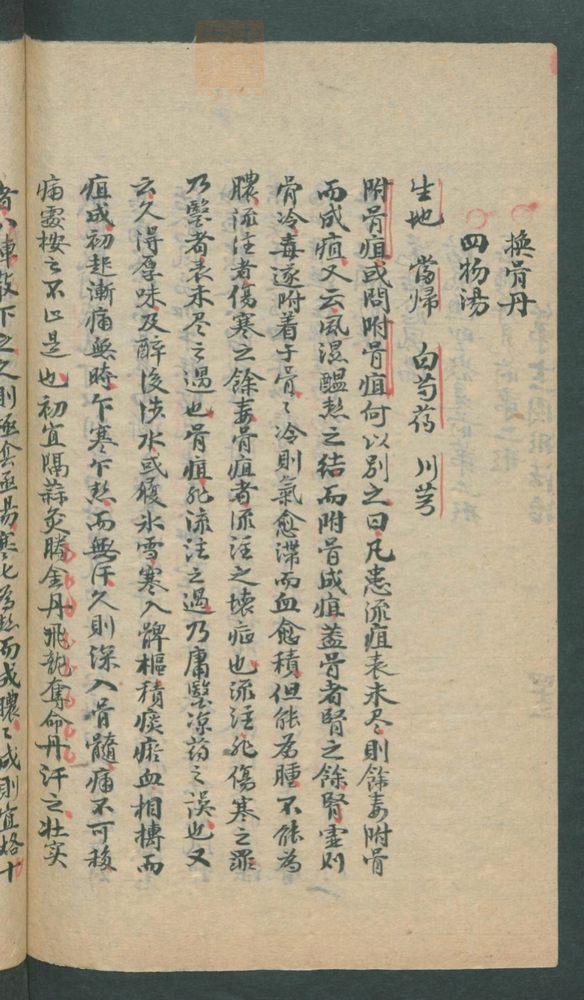 換骨丹
四物湯
生地 當歸 白芍药 川芎
附骨疽或問附骨疽何以別之曰凡患流疽表未尽則餘毒附骨
而成疽又云風濕醖熱之结而附骨成疽盖骨者腎之餘腎虚则
骨冷毒逐附着于骨〻冷則氣愈滯而血愈積但能為腫不能為
膿流注者傷寒之餘毒骨疽者流注之壊症也流注非傷寒之罪
乃醫者表未尽之過也骨疽非流注之過乃庸醫凉药之誤也又
云久得厚味及醉後涉水或履氷雪寒入髀樞積痰瘀血相搏而
疽成初起漸痛無時乍寒乍熱而無汗久則深入骨髓痛不可移
痛處按之不 是也初宜隔蒜灸勝金丹飛龍奪命丹汗之壮实
者八陣散下之久則 寒化為熱而成膿〻成則宜烙十